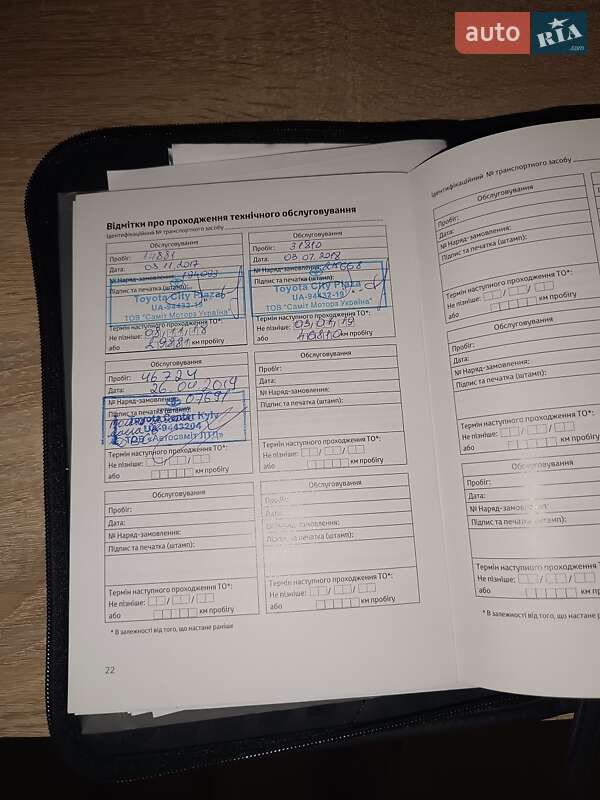 auto
RIA
.com
Відмітки про проходження технічного обслуговування
Ідентифікаційний № транспортного засобу
Обслуговування
Пробіг: 14881
Дата: 03.11.2017
№ Наряд-замовлення:
Підпис та печатка (штамп):
Toyota City Plaza
ТОВ "Саміт Моторз Україна"
Термін наступного проходження ТО*:
Не пізніше: 03/11/18
або 29881 км пробігу
Обслуговування
Пробіг: 31810
Дата: 03.07.2018
№ Наряд-замовлення:
Підпис та печатка (штамп):
Toyota City Plaza
UA-94432-19
ТОВ "Саміт Моторз Україна"
Термін наступного проходження ТО*:
Не пізніше: 03/07/19
або км пробігу
Обслуговування
Пробіг: 46724
Дата: 26.04.2019
№ Наряд-замовлення: 07691
Підпис та печатка (штамп):
Toyota Center Kyiv
UA-9443204
ТОВ «Автосаміт ЛТД»
Термін наступного проходження ТО*:
Не пізніше:
або км пробігу
Обслуговування
Пробіг:
Дата:
№ Наряд-замовлення:
Підпис та печатка (штамп):
Термін наступного проходження ТО*:
Не пізніше:
або км пробігу
Обслуговування
Пробіг:
Дата:
№ Наряд-замовлення:
Підпис та печатка (штамп):
Термін наступного проходження ТО*:
Не пізніше:
або км пробігу
Обслуговування
Пробіг:
Дата:
№ Наряд-замовлення:
Підпис та печатка (штамп):
Термін наступного проходження ТО*:
Не пізніше:
або км пробігу
* В залежності від того, що настане раніше
22
Ідентифікаційний № транспортного засобу
Обслуговування
Пробіг:
Дата:
№ Наряд-замовлення:
Підпис та печатка (штамп):
Термін наступного проходження ТО*:
Не пізніше:
або км пробігу
Обслуговування
Пробіг:
Дата:
№ Наряд-замовлення:
Підпис та печатка (штамп):
Термін наступного проходження ТО*:
Не пізніше:
або км пробігу
Обслуговування
Пробіг:
Дата:
№ Наряд-замовлення:
Підпис та печатка (штамп):
Термін наступного проходження ТО*:
Не пізніше:
або км пробігу
* В залежності від того, що настане раніше